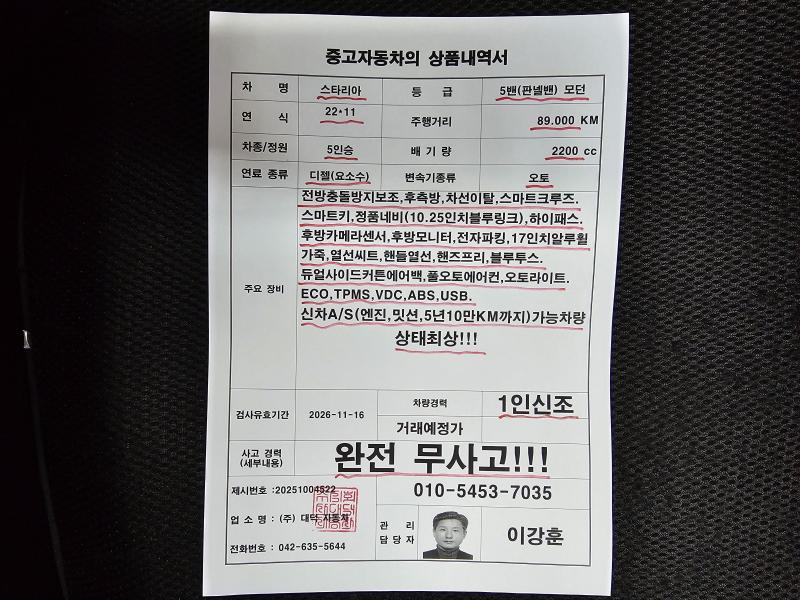 중고자동차의 상품내역서
차 명 스타리아 등 급 5밴(판넬밴) 모던
연 식 22*11 주행거리 89.000 KM
차종/정원 5인승 배 기 량 2200 cc
연료 종류 디젤(요소수) 변속기종류 오토
주요 장비
전방충돌방지보조,후측방,차선이탈,스마트크루즈.
스마트키,정품네비(10.25인치블루링크),하이패스.
후방카메라센서,후방모니터,전자파킹,17인치알루휠
가죽,열선씨트,핸들열선,핸즈프리,블루투스.
듀얼사이드커튼에어백,풀오토에어컨,오토라이트.
ECO,TPMS,VDC,ABS,USB.
신차A/S(엔진,밋션,5년10만KM까지)가능차량
상태최상!!!
검사유효기간 2026-11-16 차량경력 1인신조
거래예정가
사고 경력
(세부내용)
완전 무사고!!!
제시번호 :20251004522 010-5453-7035
업 소 명 : (주) 대덕 자동차
관 리
담 당 자
이강훈
전화번호 : 042-635-5644